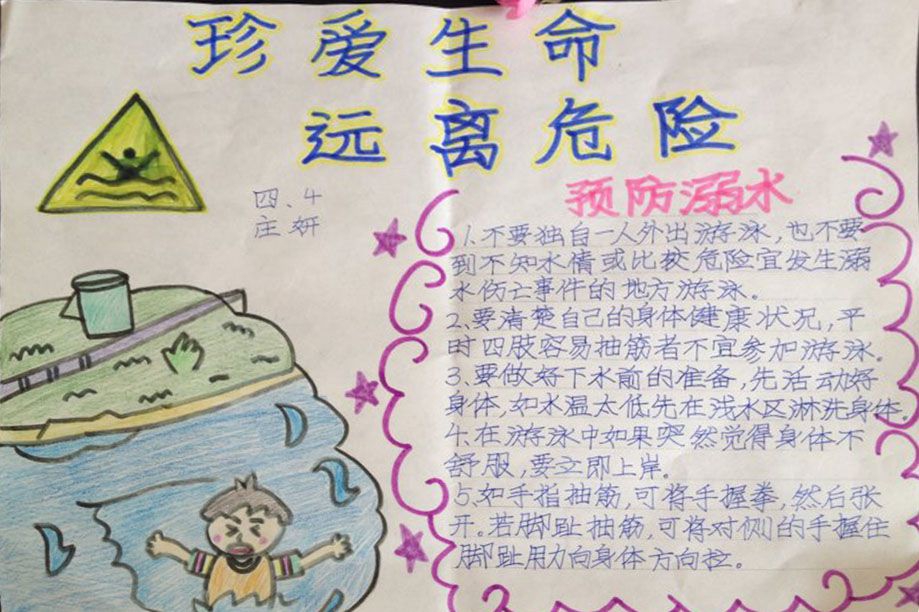 珍爱生命
远离危险
四、4
庄妍
预防溺水
1.不要独自一人外出游泳,也不要
到不知水情或比较危险宜发生溺
水伤亡事件的地方游泳。
2.要清楚自己的身体健康状况,平
时四肢容易抽筋者不宜参加游泳。
3.要做好下水前的准备,先活动好
身体,如水温太低先在浅水区淋洗身体。
4.在游泳中如果突然觉得身体不
舒服,要立即上岸。
5.如手指抽筋,可将手握拳,然后张
开。若脚趾抽筋,可将对侧的手握住
脚趾用力向身体方向拉。